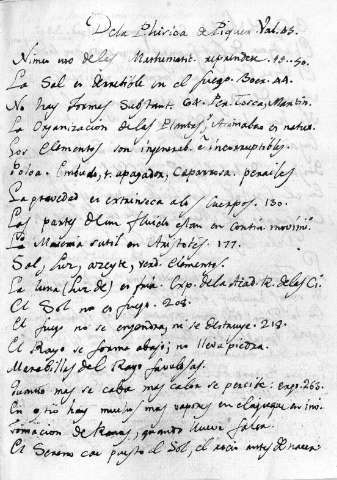 De la Phisica de Piquer Val. 45.
Nimio uso de las Mathematic. reprender. 49. 50.
La Sal es derretible en el fuego. Boer. 44.
No hay formas Substant. Tosca, Martin.
La Organizacion de las Plantas, Animales es natur.
Los Elementos son ingenerab. é incorruptibles.
apagador, Caparrosa.
La gravedad es extrinseca a los cuerpos. 130.
Las partes de un fluido estan en contin. movimi.
Materia sutil en Aristotes. 177.
Sal, luz, azeyte, verd. Elementos.
La luna (luz de) es fria. Exp. de la Acad. R. de las Ci.
El Sol no es fuego. 208.
El fuego no se engendra, ni se destruye. 213.
El Rayo se forma abajo; no lleva piedra.
Marabillas del Rayo fabulosas.
Quanto mas se caba mas calor se percibe: exp. 263.
En otro hay muchos mas vapores en el ag. que en inv.
Formacion de Ranas, quando llueve falsa.
El Sereno cae puesto el Sol, el rocio antes de nacer